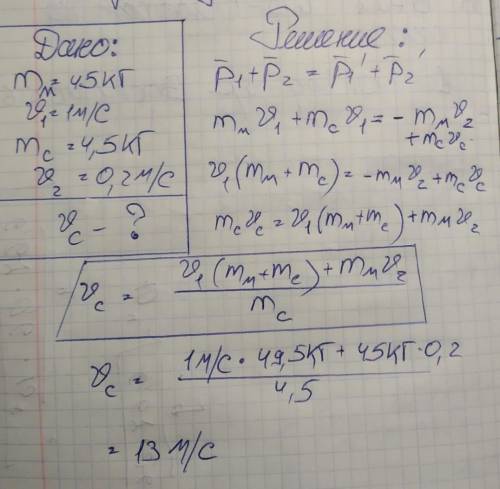 Дано:
m_м = 45 кг
ϑ₁ = 1 м/с
m_с = 4,5 кг
ϑ₂ = 0,2 м/с
ϑ_с - ?
Решение:
p̄₁ + p̄₂ = p̄₁' + p̄₂'
m_м ϑ₁ + m_с ϑ₁ = - m_м ϑ₂
+ m_с ϑ_с
ϑ₁ (m_м + m_с) = -m_м ϑ₂ + m_с ϑ_с
m_с ϑ_с = ϑ₁ (m_м + m_с) + m_м ϑ₂
ϑ_с = (ϑ₁ (m_м + m_с) + m_м ϑ₂) / m_с
ϑ_с = (1 м/с · 49,5 кг + 45 кг · 0,2) / 4,5
= 13 м/с